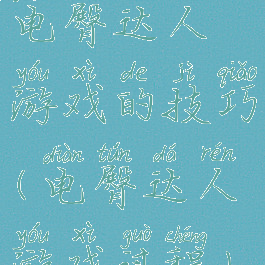 电臀达人
yóu xì de jì qiǎo
游戏的技巧
diàn tún dá rén
(电臀达人
yóu xì guò chéng
游戏过程)